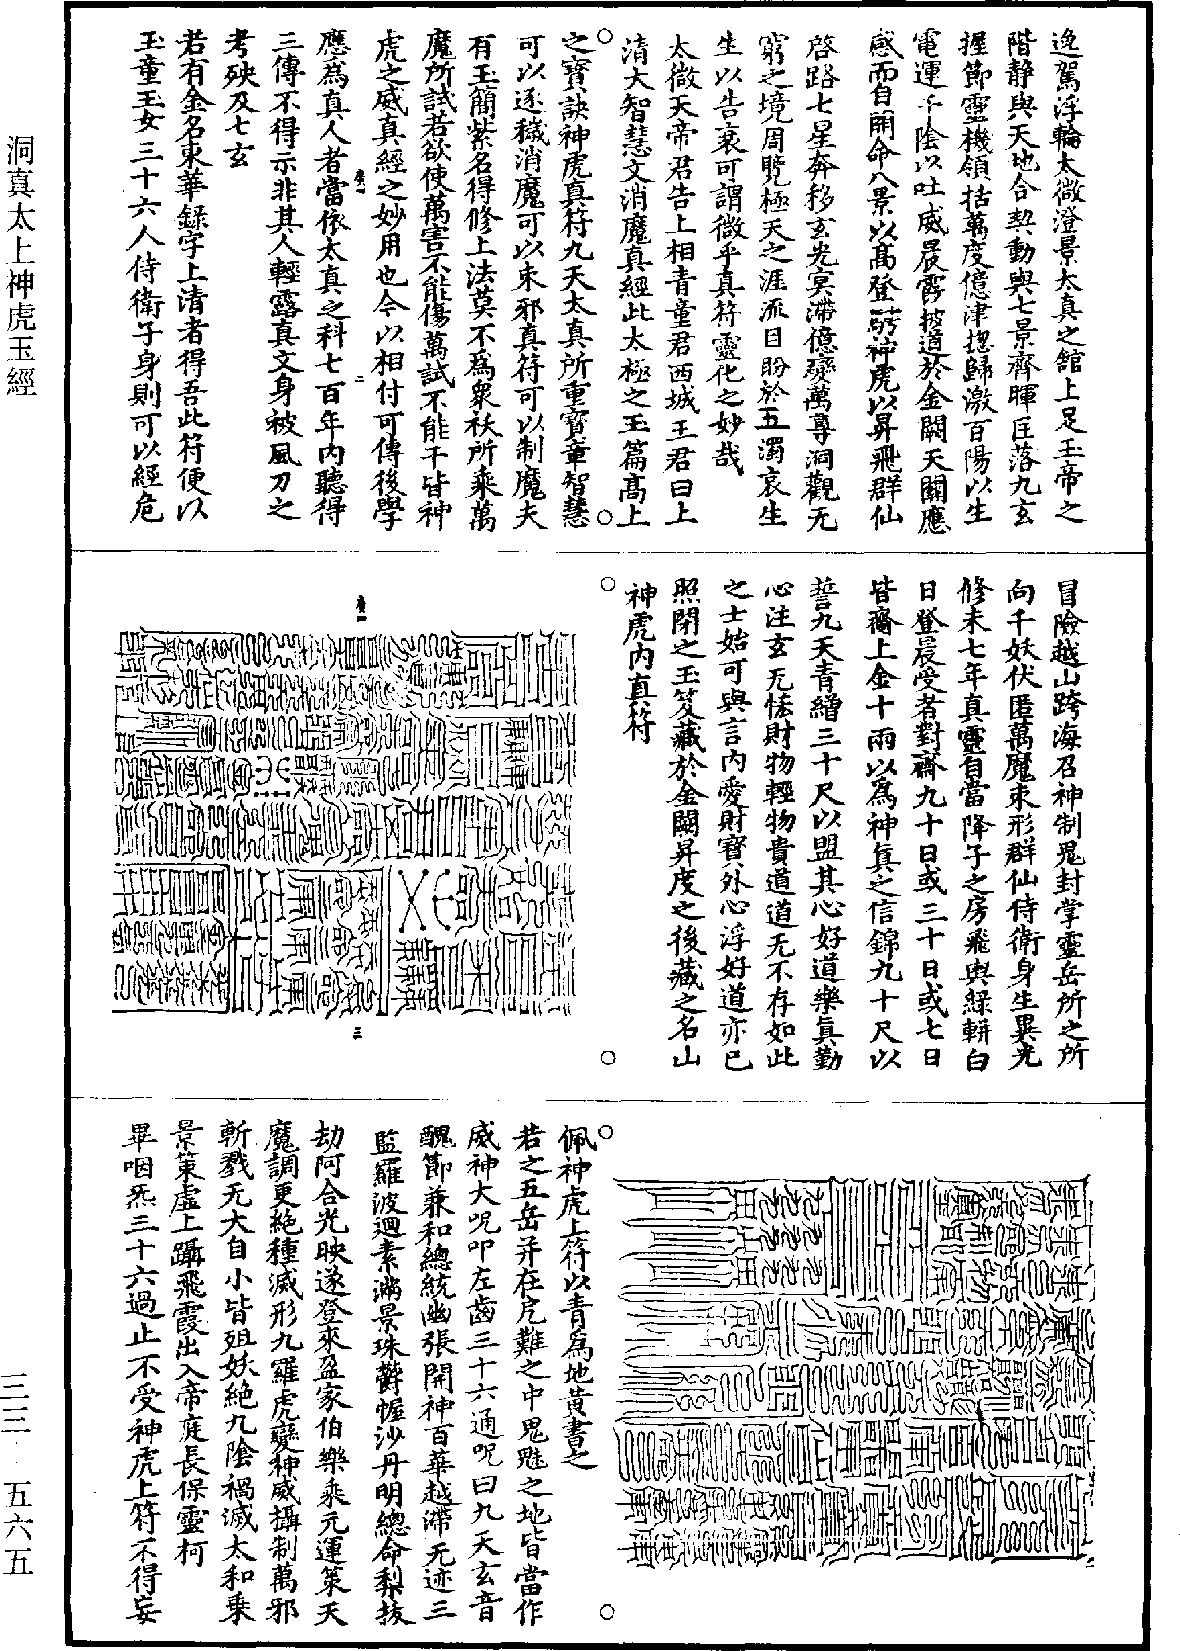 逸駕浮輪太微澄景太真之館上足玉帝之
階靜與天地合契動與七景齊暉匡落九玄
握節靈機領括萬度億津揔歸激百陽以生
電運千陰以吐威晨霄披道於金闕天關應
感而自開命八景以高登嘯神虎以昇飛群仙
啓路七星奔移玄光冥滯億變萬尋洞觀无
窮之境周覽極天之涯派目盼於五濁哀生
生以告衷可謂微乎真符靈化之妙哉
太微天帝君告上相青童君西城王君曰上
清大智慧文消魔真經此太極之玉篇高上
之寶訣神虎真符九天太真所重寶章智慧
可以逐穢消魔可以束邪真符可以制魔夫
有玉簡紫名得修上法莫不爲衆祅所乘萬
魔所試若欲使萬害不能傷萬試不能干皆神
虎之威真經之妙用也今以相付可傳後學
應爲真人者當依太真之科七百年內聽得
三傳不得示非其人輕露真文身被風刀之
考殃及七玄
若有金名東華錄字上清者得吾此符便以
玉童玉女三十六人侍衛子身則可以經危
二
冒險越山跨海召神制鬼封掌靈岳所之所
向千妖伏匿萬魔束形群仙侍衛身生異光
修未七年真靈自當降子之房飛輿綠軿白
日登晨受者對齋九十日或三十日或七日
皆齋上金十兩以爲神真之信錦九十尺以
誓九天青繒三十尺以盟其心好道樂真勤
心注玄无恡財物輕物貴道道无不存如此
之士始可與言內愛財寶外心浮好道亦已
照閉之玉笈藏於金闕昇度之後藏之名山
神虎內真符
三
佩神虎上符以青爲地黃書之
若之五岳并在危難之中鬼魅之地皆當作
威神大呪叩左齒三十六通呪曰九天玄音
醜節兼和總統幽張開神百華越滯无迹三
監羅波迴素滿景珠鬱幄沙丹明總命梨拔
劫阿合光映遂登來盈家伯樂乘元運策天
魔調更絶種滅形九羅虎變神威攝制萬邪
斬戮无大自小皆殂妖絶九陰禍滅太和乗
景策虛上躡飛霞出入帝庭長保靈柯
畢咽炁三十六過止不受神虎上符不得妄
洞真太上神虎玉經
三三 五六五